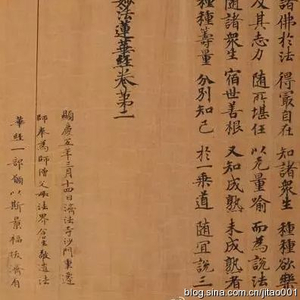 諸佛於法 得冣自在 知諸衆生 種種欲樂
及其志力 隨所堪任 以无量喻 而為說法
隨諸衆生 宿世善根 又知成熟 未成熟者
種種籌量 分別知已 於一乘道 隨宜說三
妙法蓮華經卷第二
顯慶五年三月十四日濟法寺沙門重遷
師奉為師僧父母法界蒼生敬造法
華經一部願以斯景福
blog.sina.com.cn/jitao001